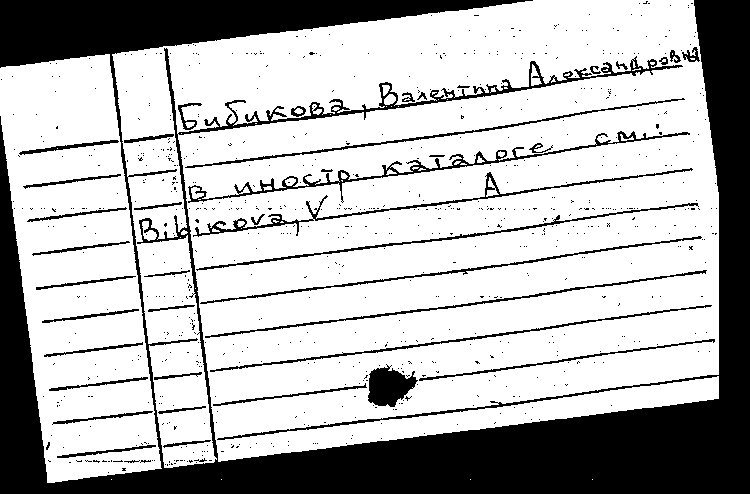 Бибикова, Валентина Александровна
в иностр. каталоге см.:
Bibikova, V A